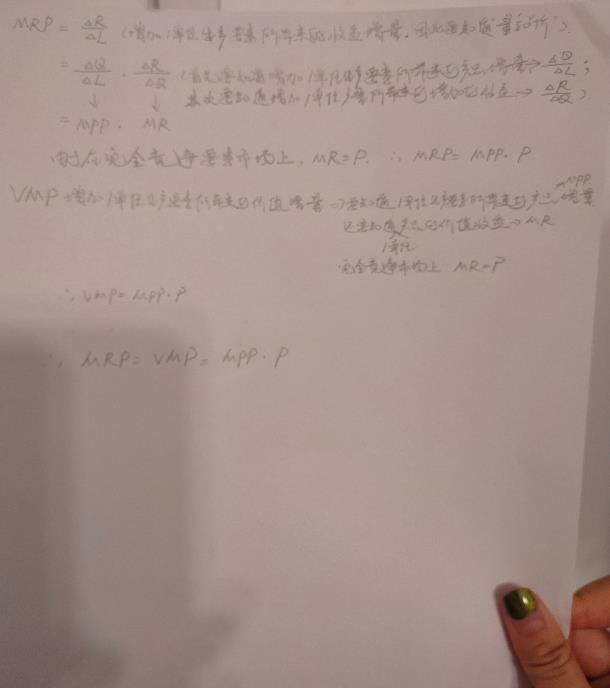 MRP = ΔR/ΔL (增加1单位生产要素所带来的收益增量,因此要知道"量"和"价").
= ΔQ/ΔL · ΔR/ΔQ (首先要知道增加1单位生产要素所带来的产品增量→ΔQ/ΔL;
↓ ↓ 其次要知道增加1单位产量所带来的增加的收益→ΔR/ΔQ)
= MPP · MR
由于在完全竞争要素市场上, MR=P. ∴ MRP= MPP · P
VMP→增加1单位生产要素所带来的价值增量 →要知道1单位生产要素所带来的产品增量 →MPP
还要知道产品的价值收益→MR
1单位
完全竞争市场上 MR=P
∴ VMP= MPP · P
∴ MRP= VMP= MPP · P